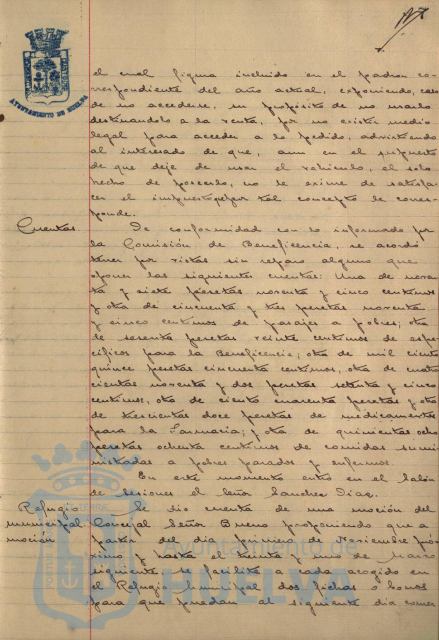 AYUNTAMIENTO DE HUELVA
el cual figura incluido en el padron co-
rrespondiente del año actual, exponiendo, caso
de no accederse, su propósito de no usarlo
destinandolo a la venta, por no existir medio
legal para acceder a lo pedido, advirtiendo
al interesado de que, aun en el supuesto
de que deje de usar el vehiculo, el solo
hecho de poseerlo, no le exime de satisfa-
cer el impuesto que por tal concepto le corres-
ponde.
Cuentas. De conformidad con lo informado por
la Comisión de Beneficencia, se acordó
tener por vistas sin reparo alguno que
oponer las siguientes cuentas: Una de noven-
ta y siete pesetas noventa y cinco centimos
y otra de cincuenta y tres pesetas noventa
y cinco centimos de pasajes a pobres; otra
de sesenta pesetas veinte centimos de espe-
cificos para la Beneficencia; otra de mil ciento
quince pesetas cincuenta centimos, otra de cuatro-
cientas noventa y dos pesetas setenta y cinco
centimos, otra de ciento cuarenta pesetas y otra
de trescientas doce pesetas de medicamentos
para la Farmacia; y otra de quinientas ocho
pesetas ochenta centimos de comidas sumi-
nistradas a pobres parados y enfermos.
En este momento entra en el Salón
de sesiones el Señor Sanchez Diaz.
Refugio municipal moción Se dio cuenta de una moción del
Concejal Señor Bueno proponiendo que a
partir del dia primero de Noviembre pró-
ximo y hasta el treinta y uno de Marzo
siguiente se facilite a cada acogido en
el Refugio Municipal dos fichas o bonos
para que puedan al siguiente dia comer
Ayuntamiento de
HUELVA